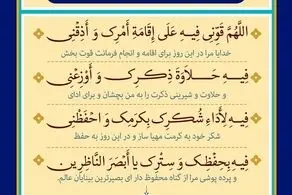 اللَّهُمَّ قَوِّنِي فِيهِ عَلَى إِقَامَةِ أَمْرِكَ وَ أَذِقْنِي
خدایا مرا در این روز برای اقامه و انجام فرمانت قوت بخش
فِيهِ حَلاوَةَ ذِكْرِكَ وَ أَوْزِعْنِي
و حلاوت و شیرینی ذکرت را به من بچشان و برای ادای
فِيهِ لِأَدَاءِ شُكْرِكَ بِكَرَمِكَ وَ احْفَظْنِي
شکر خود به کرمت مهیا ساز و در این روز به حفظ
فِيهِ بِحِفْظِكَ وَ سِتْرِكَ يَا أَبْصَرَ النَّاظِرِينَ
و پرده پوشی مرا از گناه محفوظ دار ای بصیرترین بینایان عالم.